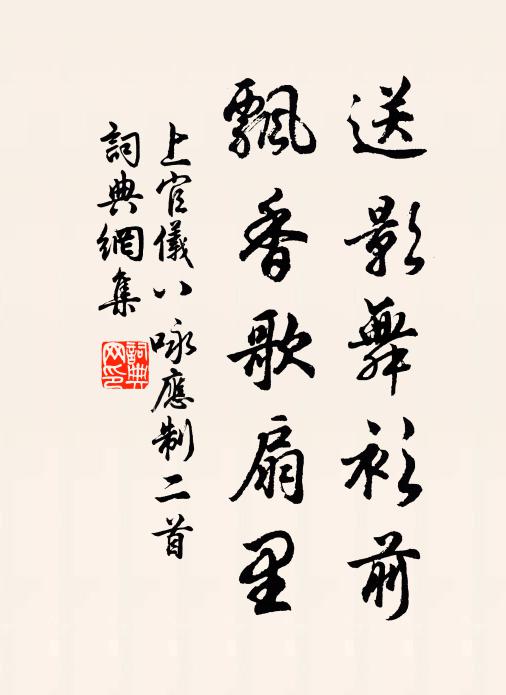 送影舞衫前
飄香歌扇里
上官儀八咏應制二首
詞典網集
詞典网印